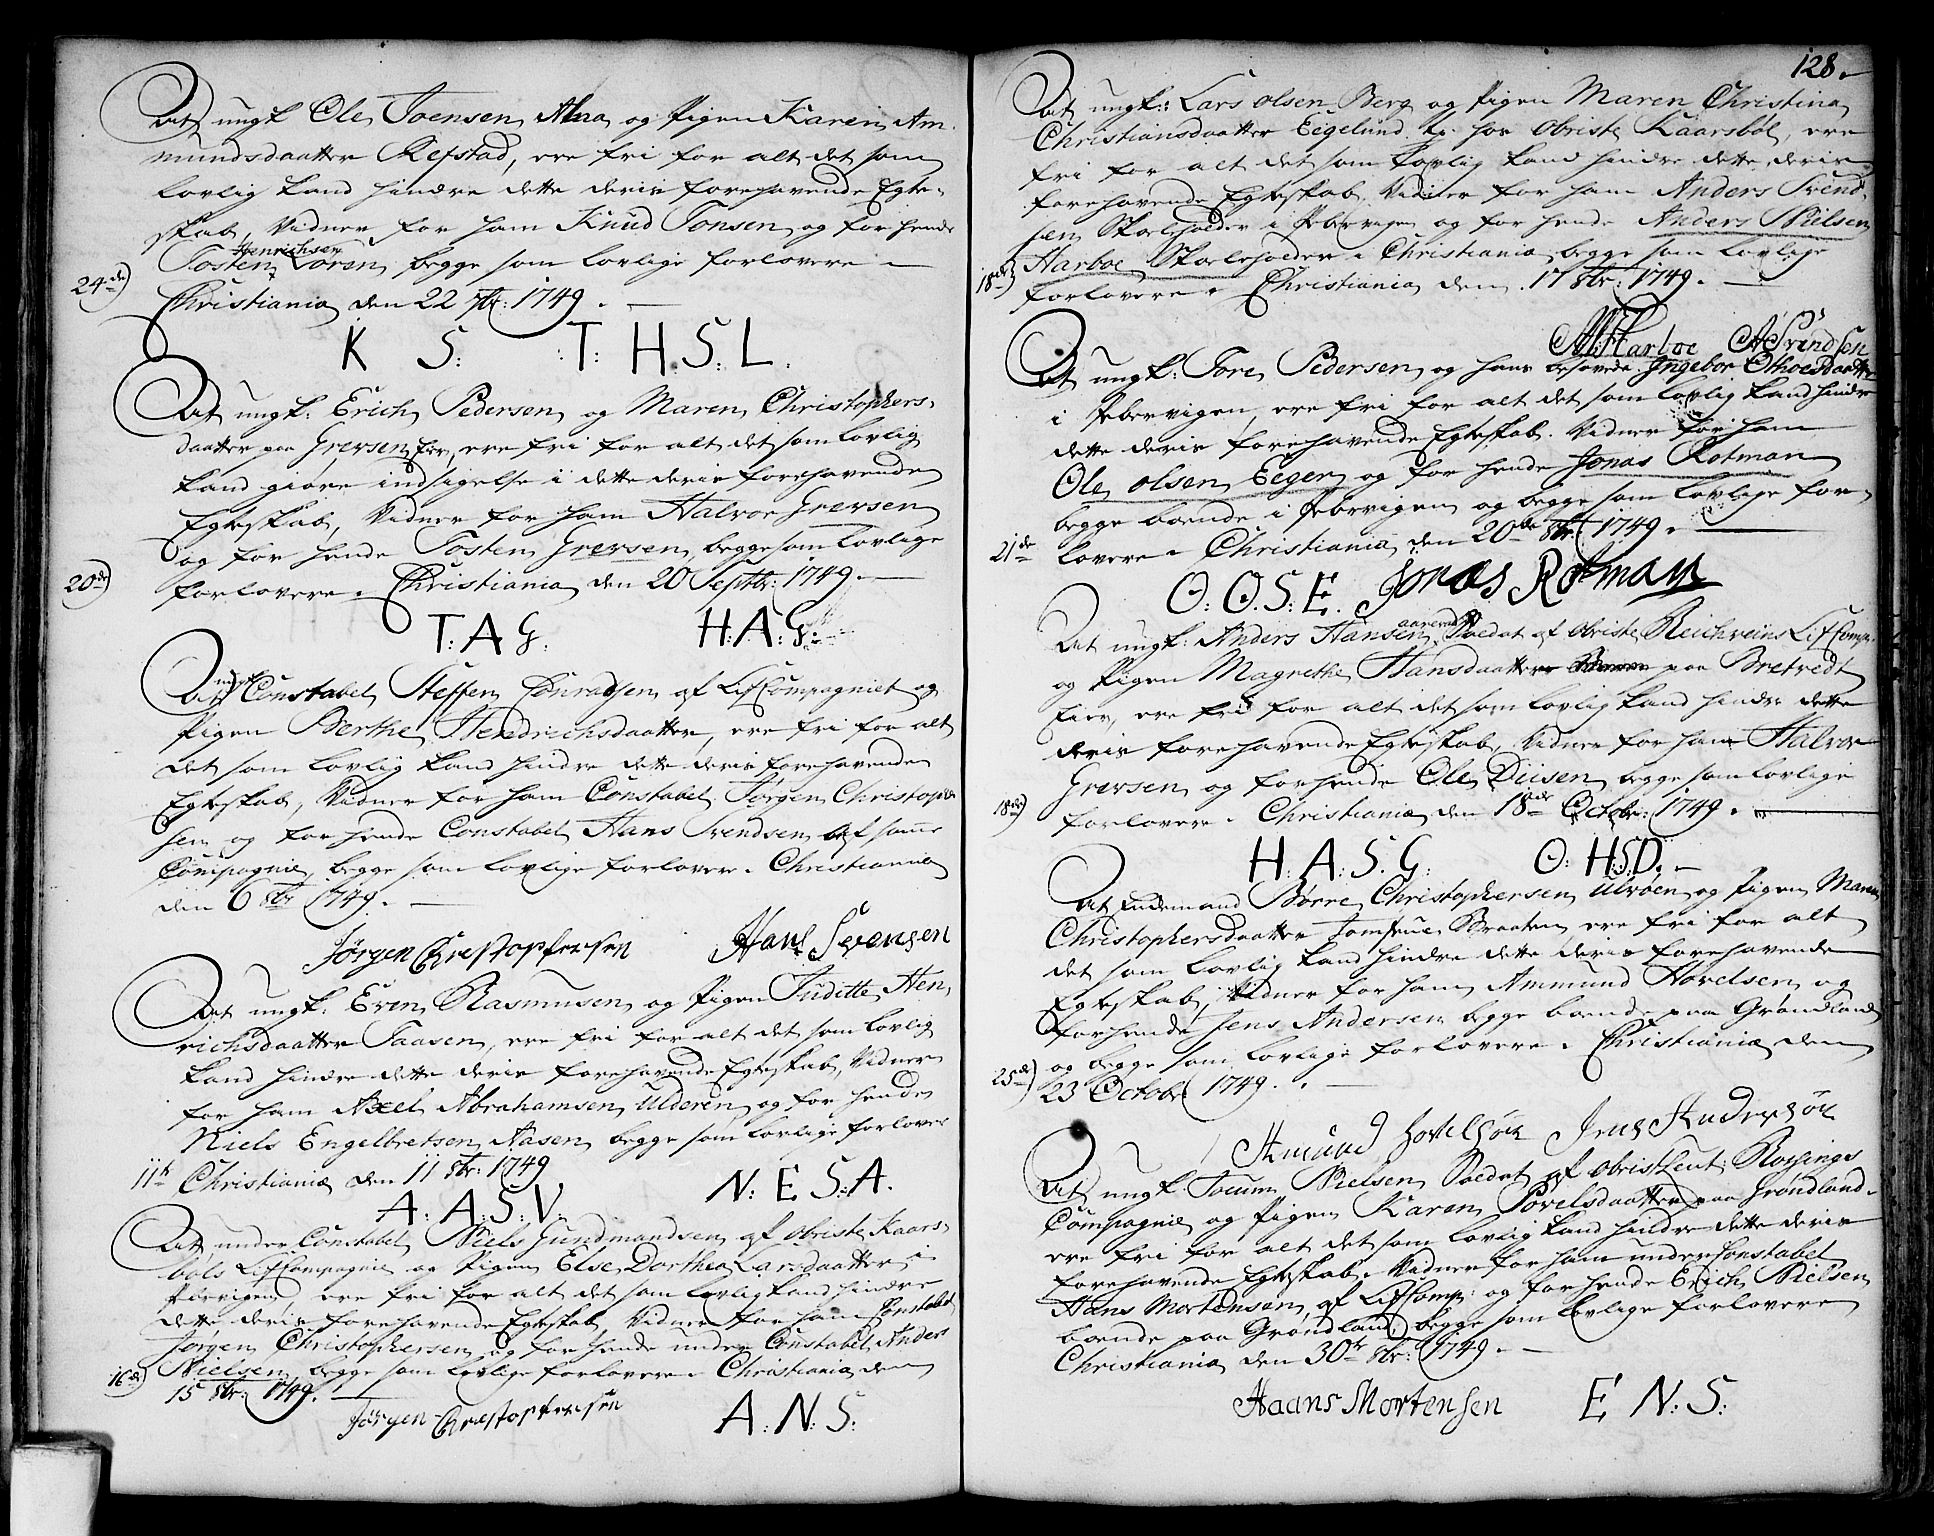 At ungk. Ole Joensen Alna og Pigen Karen Am-
mundsdaatter Refstad, ere fri for alt det som
lovlig kand hindre dette deris forehavende Egte-
skab, Vidner for ham Knud Tonsen og for hende
Tosten Henrichsen Loren begge som lovlige forlovere
24de) Christiania den 22 7br: 1749.
K S: T: H: S: L.
At ungk: Erich Pedersen og Maren Christophers-
daatter paa Grevsen Eier, ere fri for alt det som lovlig
kand giøre indsigelse i dette deris forehavende
Egteskab, Vidner for ham Halvor Grevsen
og for hende Tosten Grevsen begge som lovlige
20de) forlovere. Christiania den 20 Septbr: 1749.
T: A G. H: A: G:
At ungk Constabel Steffen Conradsen af LifCompagniet og
Pigen Berthe Hendrichsdaatter, ere fri for alt
det som lovlig kand hindre dette deris forehavende
Egteskab, Vidner for ham Constabel Jørgen Christopher
sen og for hende Constabel Hans Svendsen af samme
Compagnie, begge som lovlige forlovere. Christiania
den 6 8br 1749.
Jørgen Chrestophersen Hans Svensen
At ungk. Even Rasmusen og Pigen Juditte Hen-
richsdaatter Taasen, ere fri for alt det som lovlig
kand hindre dette deris forehavende Egteskab, Vidner
for ham Axel Abrahamsen Ulderen og for hende
Niels Engelbretsen Aasen begge som lovlige forlover
11te Christiania den 11 8br: 1749
A. A: S: V. N: E S: A.
At under Constabel Niels Gundmandsen af Obriste Kaars-
bøls LifCompagnie og Pigen Else Dorthea Larsdaatter i
Pibervigen ere fri for alt det som lovlig kand hindre
dette deris forehavende Egteskab, Vidner for ham Constabel
Jørgen Christophersen og for hende under Constabel Anders
16de) Nielsen begge som lovlige forlovere. Christiania den
15 8br: 1749.
Jørgen Chrestophersen A: N: S:
128.
At ungk: Lars Olsen Berg og Pigen Maren Christina
Christiansdaatter Eegelund tp. hos Obriste Kaarsbøl, ere
fri for alt det som lovlig kand hindre dette deris
forehavende Egteskab, Vidner for ham Anders Svend-
sen Skoeleholder i Pibervigen og for hende Anders Nielsen
Harboe Skoeleholder i Christiania begge som lovlige
18de) forlovere. Christiania den 17 8br: 1749.
AN Harboe A Svendsen
At ungk: Tore Pedersen og hans besovede Ingebor Othoesdaatter
i Pebervigen, ere fri for alt det som lovlig kand hindre
dette deris forehavende Egteskab. Vidner for ham
Ole Olsen Eeger og for hende Jonas Rotman
begge boende i Pebervigen og begge som lovlige for-
21de lovere. Christiania den 20de 8br: 1749.
O: O: S: E. Jonas Rotman
At ungk: Anders Hansen Soldat af Obriste Reichweins LifComp:
og Pigen Magrethe Hansdaatter paa Bretvedt
Eier, ere fri for alt det som lovlig kand hindre dette
deris forehavende Egteskab, Vidner for ham Halvor
Grevsen og for hende Ole Diisen begge som lovlige
18de) forlovere. Christiania den 18de October: 1749.
H: A: S: G: O: H: S: D.
At Enkemand Børre Christophersen Ulvøen og Pigen Maren
Christophersdaatter Jomfrue Braaten ere fri for alt
det som lovlig kand hindre dette deris forehavende
Egteskab, Vidner for ham Ammund Hovelsen og
for hende Jens Andersen begge boende paa Grøndland
og begge som lovlige forlovere. Christiania den
25de) 23 October 1749.
Amund Hovelsøn Jens Andersøn
At ungk. Joeum Nielsen Soldat af ObristLeut: Rosings
Compagnie og Pigen Karen Povelsdaatter paa Grøndland
ere fri for alt det som lovlig kand hindre dette deris
forehavende Egteskab. Vidner for ham under Constabel
Hans Mortensen af LifComp: og for hende Erich Nielsen
boende paa Grøndland, begge som lovlige forlovere
Christiania den 30te 8br: 1749.
Haans Mortensen E N: S: